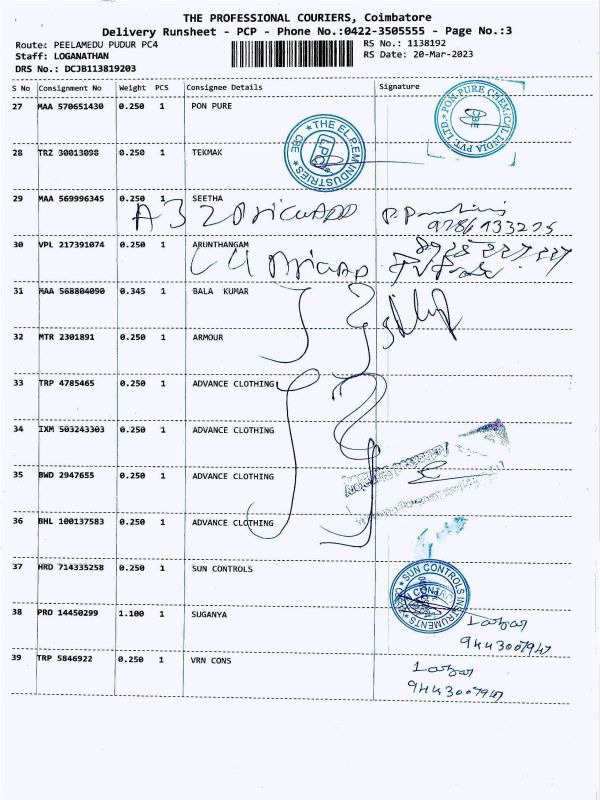 THE PROFESSIONAL COURIERS, Coimbatore
Delivery Runsheet - PCP - Phone No.:0422-3505555 - Page No.:3
Route: PEELAMEDU PUDUR PC4
RS No.: 1138192
Staff: LOGANATHAN
RS Date: 20-Mar-2023
DRS No.: DCJB113819203
S No Consignment No Weight PCS Consignee Details Signature
27 MAA 570651430 0.250 1 PON PURE
PON PURE CHEMICAL INDIA PVT. LTD.
28 TRZ 30013098 0.250 1 TEKMAK
THE EL.P.EM INDUSTRIES CBE
LPC
29 MAA 569996345 0.250 1 SEETHA
A3
30 VPL 217391074 0.250 1 ARUNTHANGAM
C4
31 MAA 568804090 0.345 1 BALA KUMAR
32 MTR 2301891 0.250 1 ARMOUR
33 TRP 4785465 0.250 1 ADVANCE CLOTHING
34 IXM 503243303 0.250 1 ADVANCE CLOTHING
35 BWD 2947655 0.250 1 ADVANCE CLOTHING
36 BHL 100137583 0.250 1 ADVANCE CLOTHING
37 HRD 714335258 0.250 1 SUN CONTROLS
SUN CONTROLS INSTRUMENTS
38 PRO 14450299 1.100 1 SUGANYA
9443007947
39 TRP 5846922 0.250 1 VRN CONS
9443007947